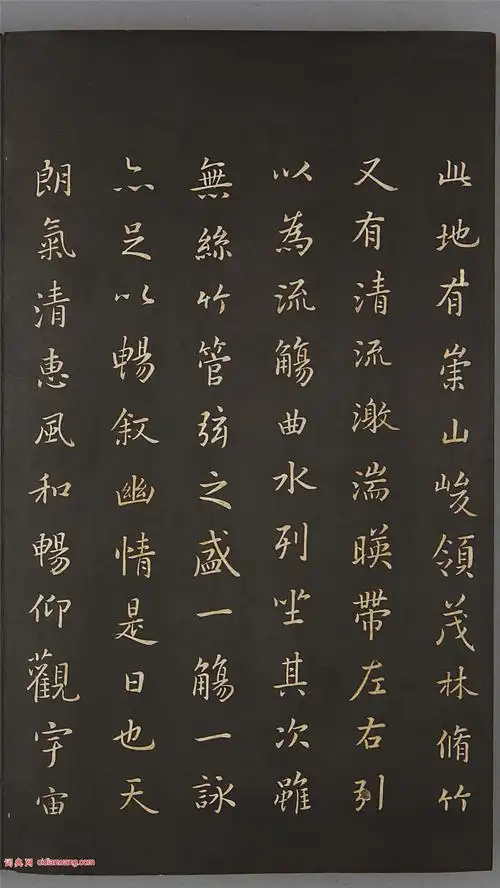 此地有崇山峻領茂林脩竹
又有清流激湍暎帶左右引
以為流觴曲水列坐其次雖
無絲竹管弦之盛一觴一詠
亦足以暢叙幽情是日也天
朗氣清惠風和暢仰觀宇宙
词典网 cidianwang.com